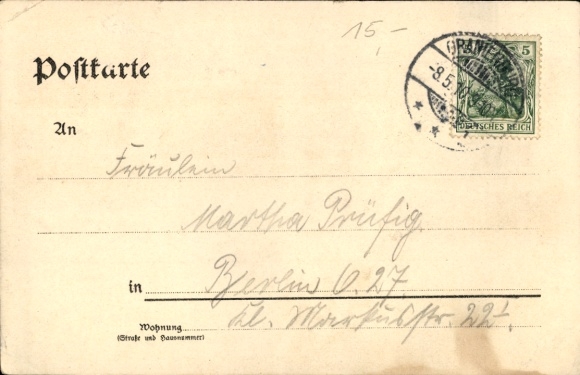 15,-
Postkarte
5
-8.5.
DEUTSCHES REICH
An
Fräulein
Martha Prüfig.
in Berlin O. 27
Wohnung
(Straße und Hausnummer)
Kl. Markusstr. 22 I.